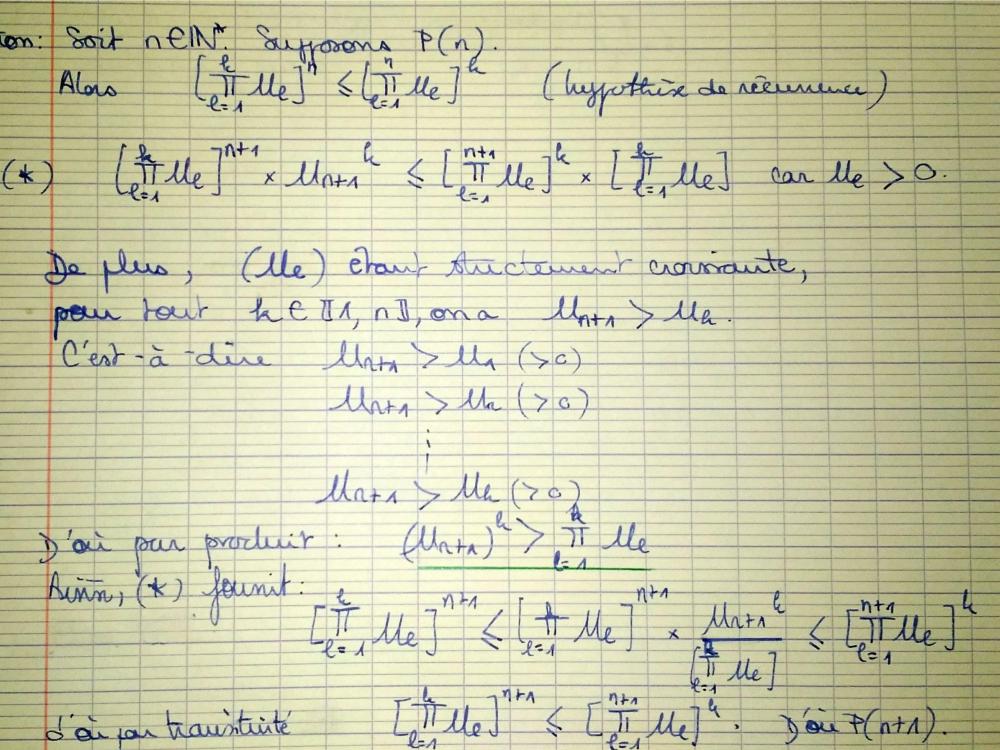 ion: Soit n∈ℕ*. Supposons P(n).
Alors [∏_{l=1}^{k} u_l]^n ≤ [∏_{l=1}^{n} u_l]^k (hypothèse de récurrence)
(*) [∏_{l=1}^{k} u_l]^{n+1} × u_{n+1}^k ≤ [∏_{l=1}^{n+1} u_l]^k × [∏_{l=1}^{k} u_l] car u_l > 0.
De plus, (u_l) étant strictement croissante,
pour tout k ∈ ⟦1, n⟧, on a u_{n+1} > u_k.
C'est-à-dire u_{n+1} > u_1 (>0)
u_{n+1} > u_2 (>0)
⋮
u_{n+1} > u_k (>0)
D'où par produit : (u_{n+1})^k > ∏_{l=1}^{k} u_l
Ainsi, (*) fournit :
[∏_{l=1}^{k} u_l]^{n+1} ≤ [∏_{l=1}^{k} u_l]^{n+1} × u_{n+1}^k / [∏_{l=1}^{k} u_l] ≤ [∏_{l=1}^{n+1} u_l]^k
d'où par transitivité [∏_{l=1}^{k} u_l]^{n+1} ≤ [∏_{l=1}^{n+1} u_l]^k. D'où P(n+1).